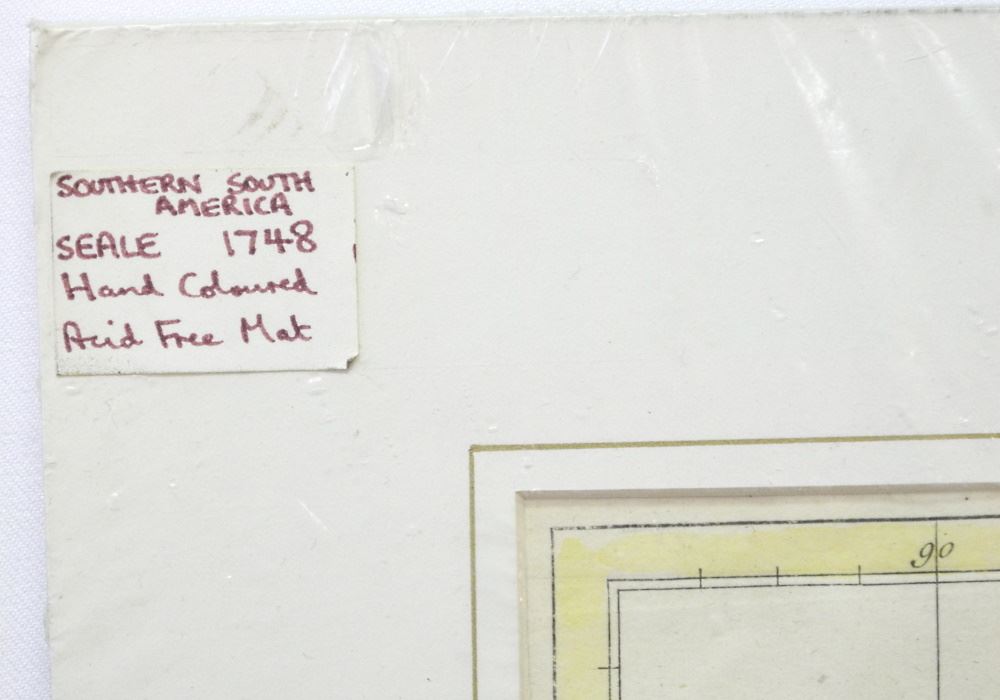 SOUTHERN SOUTH
AMERICA
SEALE 1748
Hand Coloured
Acid Free Mat
90